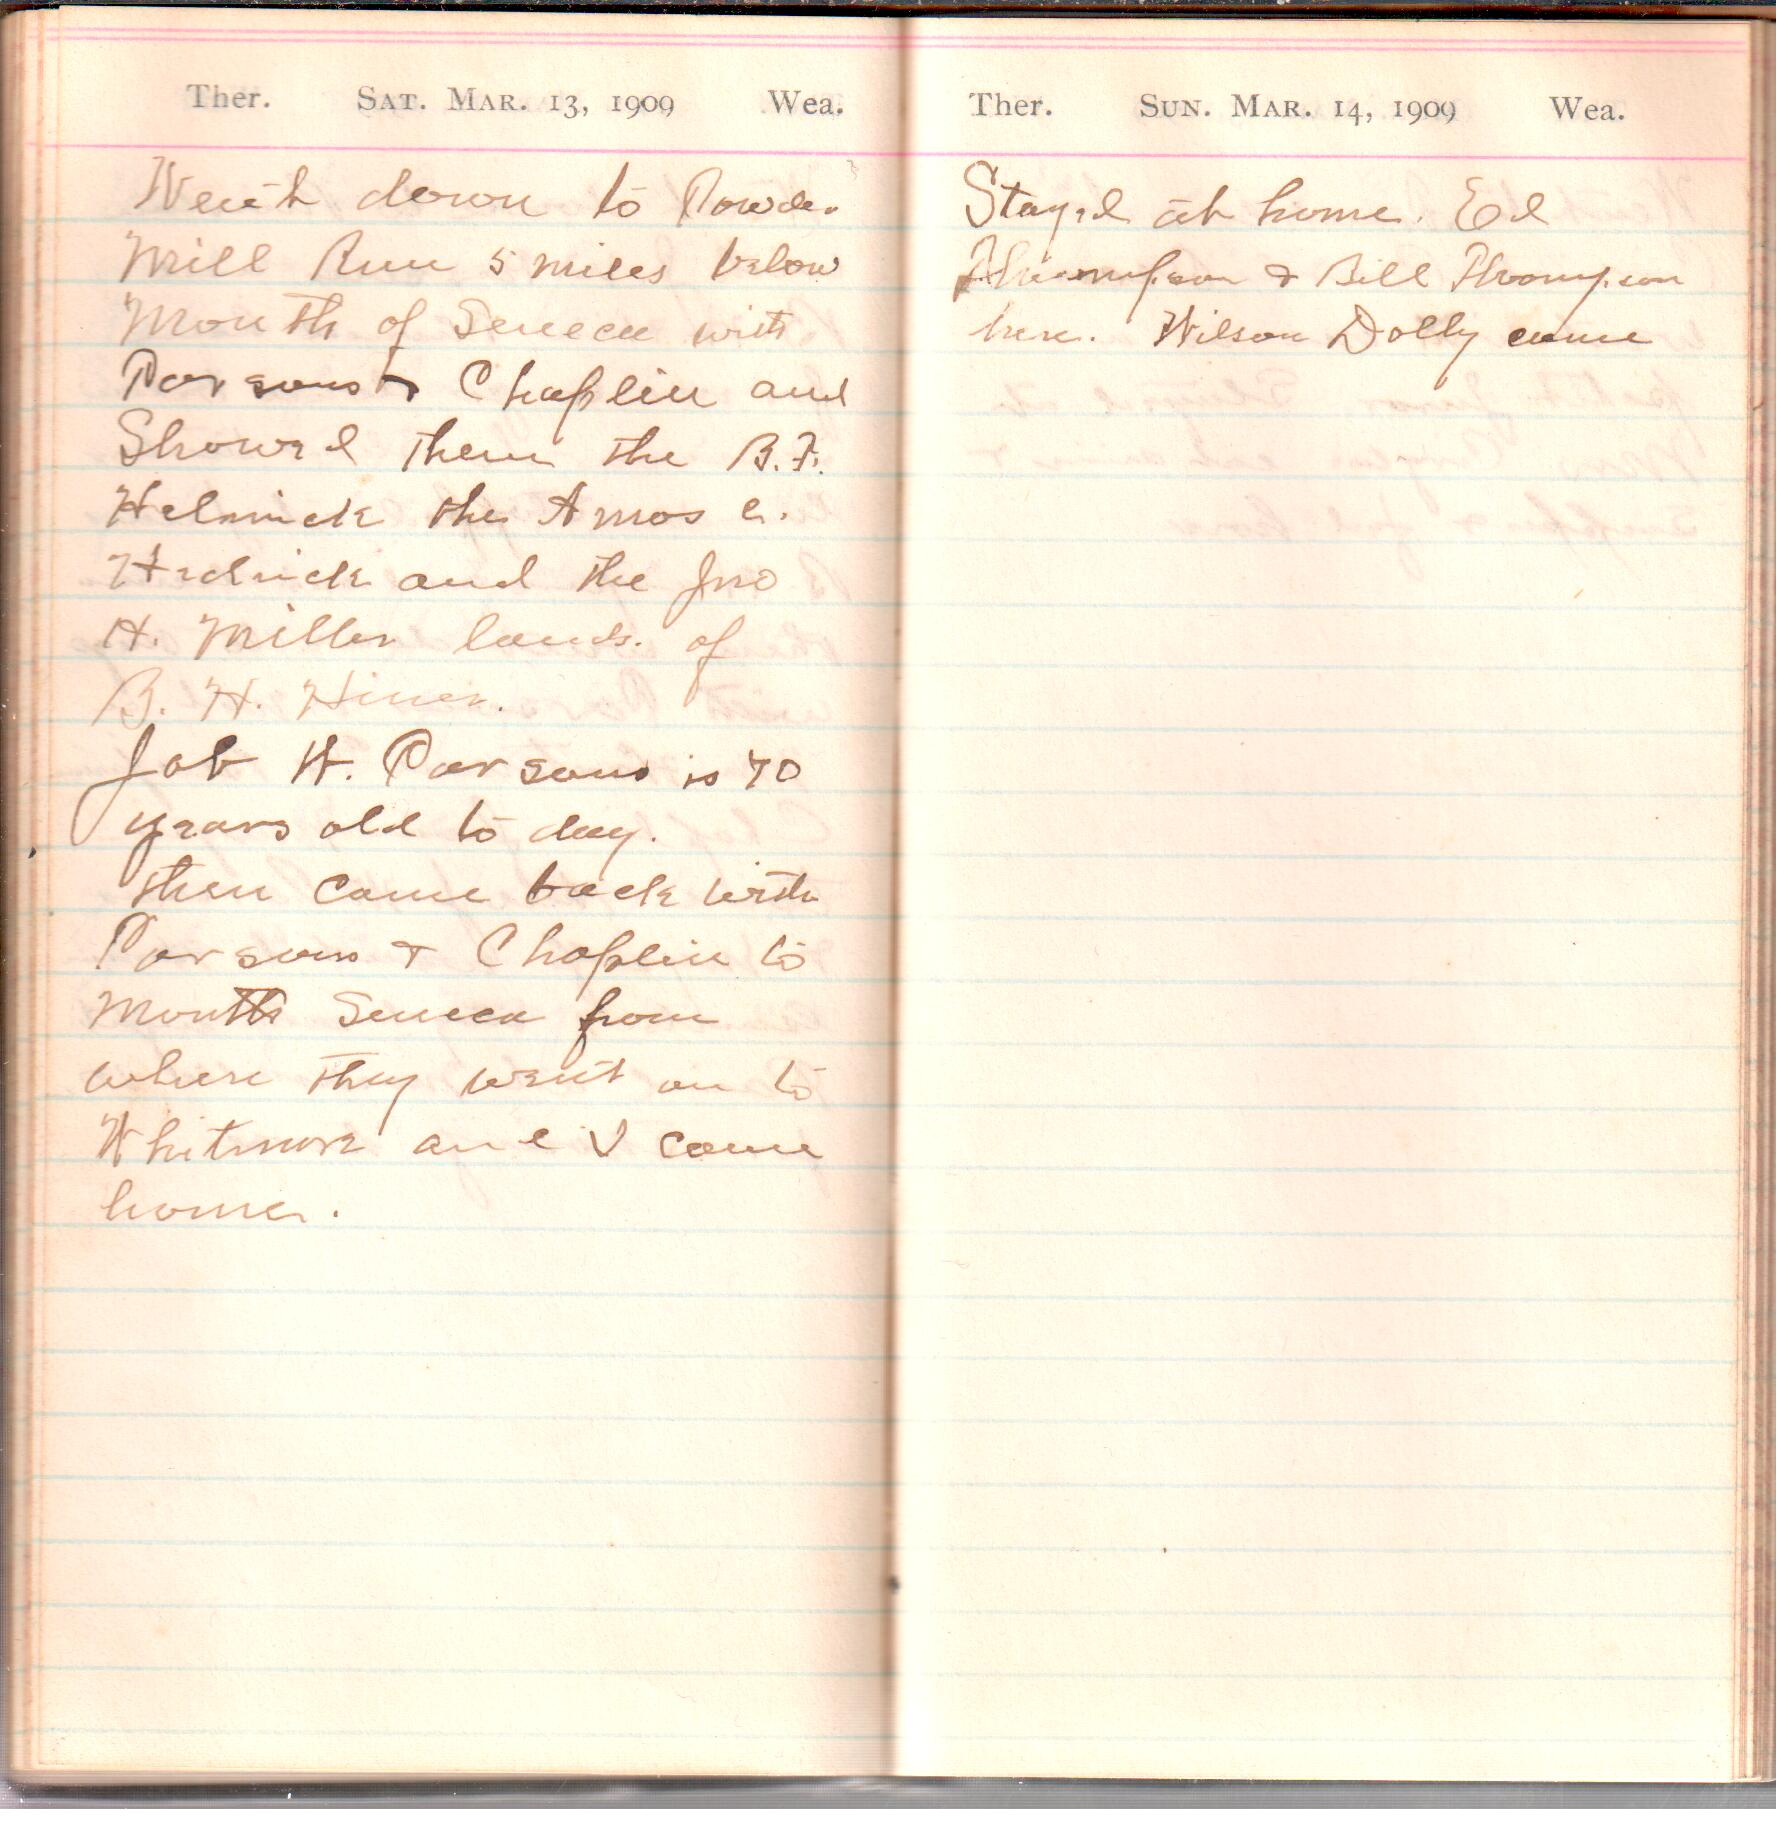 Ther. Sat. Mar. 13, 1909 Wea.
Went down to Powder
Mill Run 5 miles below
Mouth of Seneca with
Parsons & Chaplin and
Showed them the B.F.
Helmick the Amos C.
Hedrick and the Jno
H. Miller lands. of
B. H. Hiner.
Job W. Parsons is 70
years old to day.
then came back with
Parsons & Chaplin to
Mouth Seneca from
where they went on to
Whitmore and I came
home.
Ther. Sun. Mar. 14, 1909 Wea.
Stayed at home. Ed
Thompson & Bill Thompson
here. Wilson Dolly came